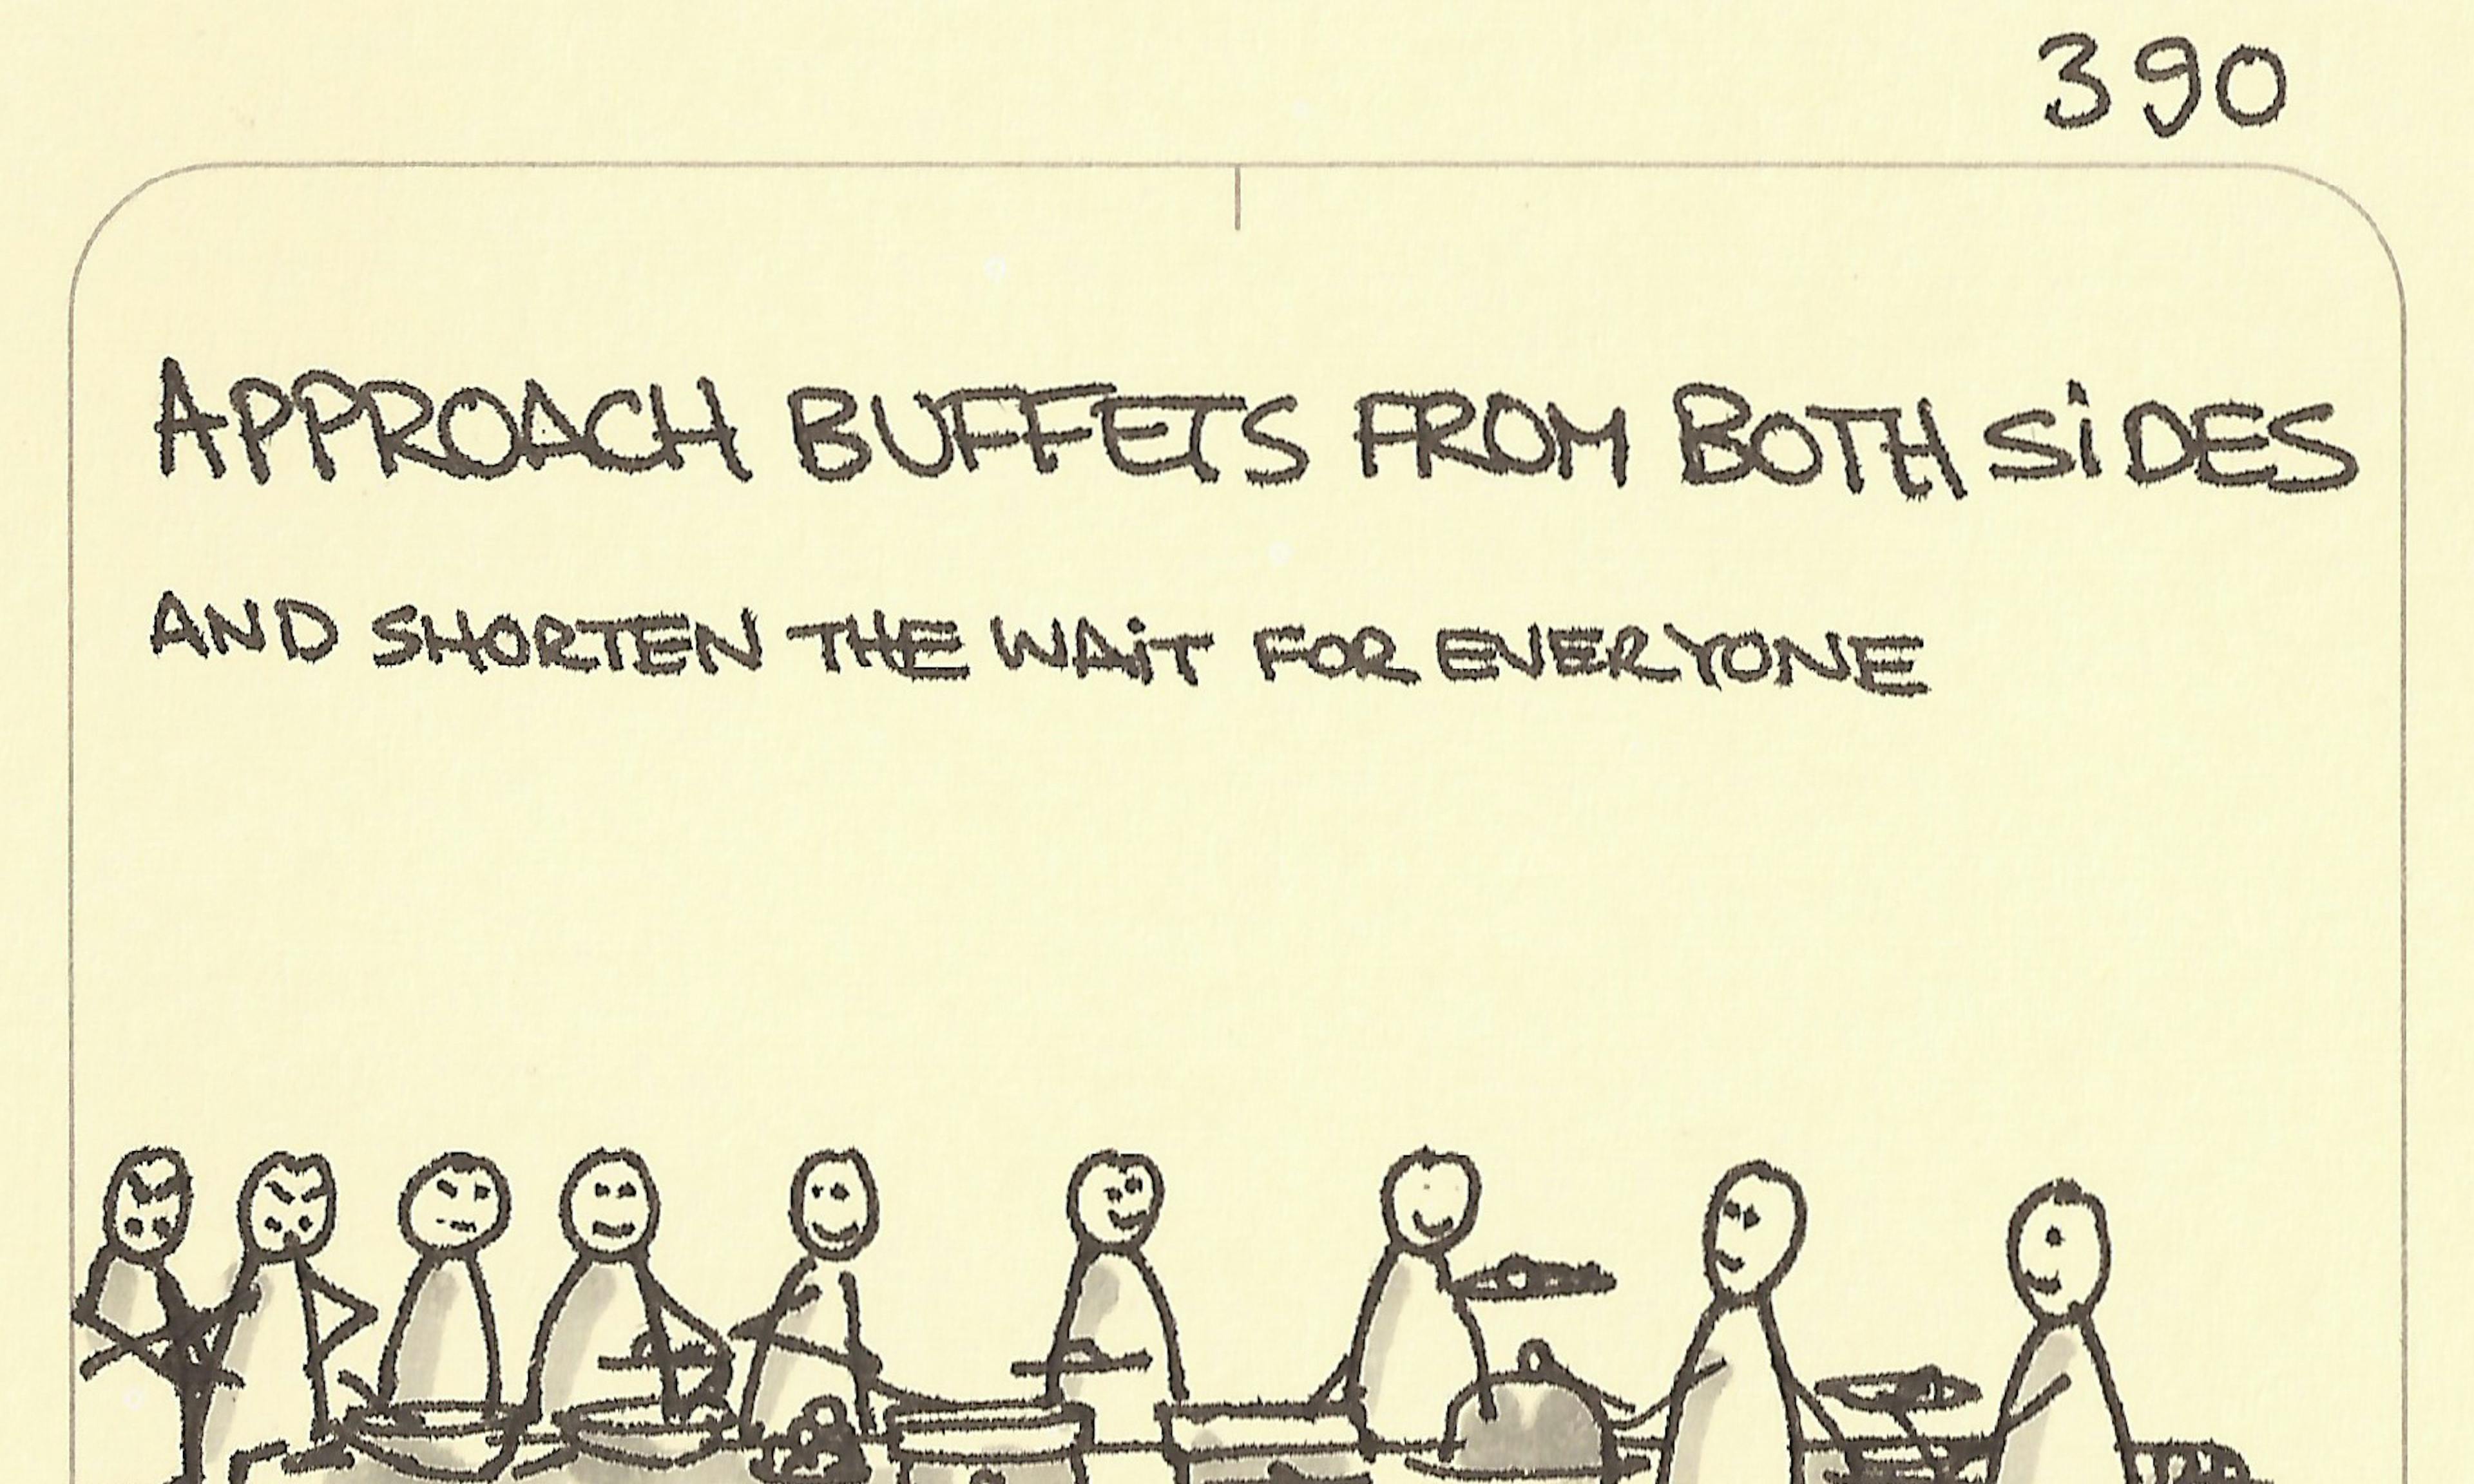 390
APPROACH BUFFETS FROM BOTH SiDES
AND SHORTEN THE WAiT FOR EVERYONE